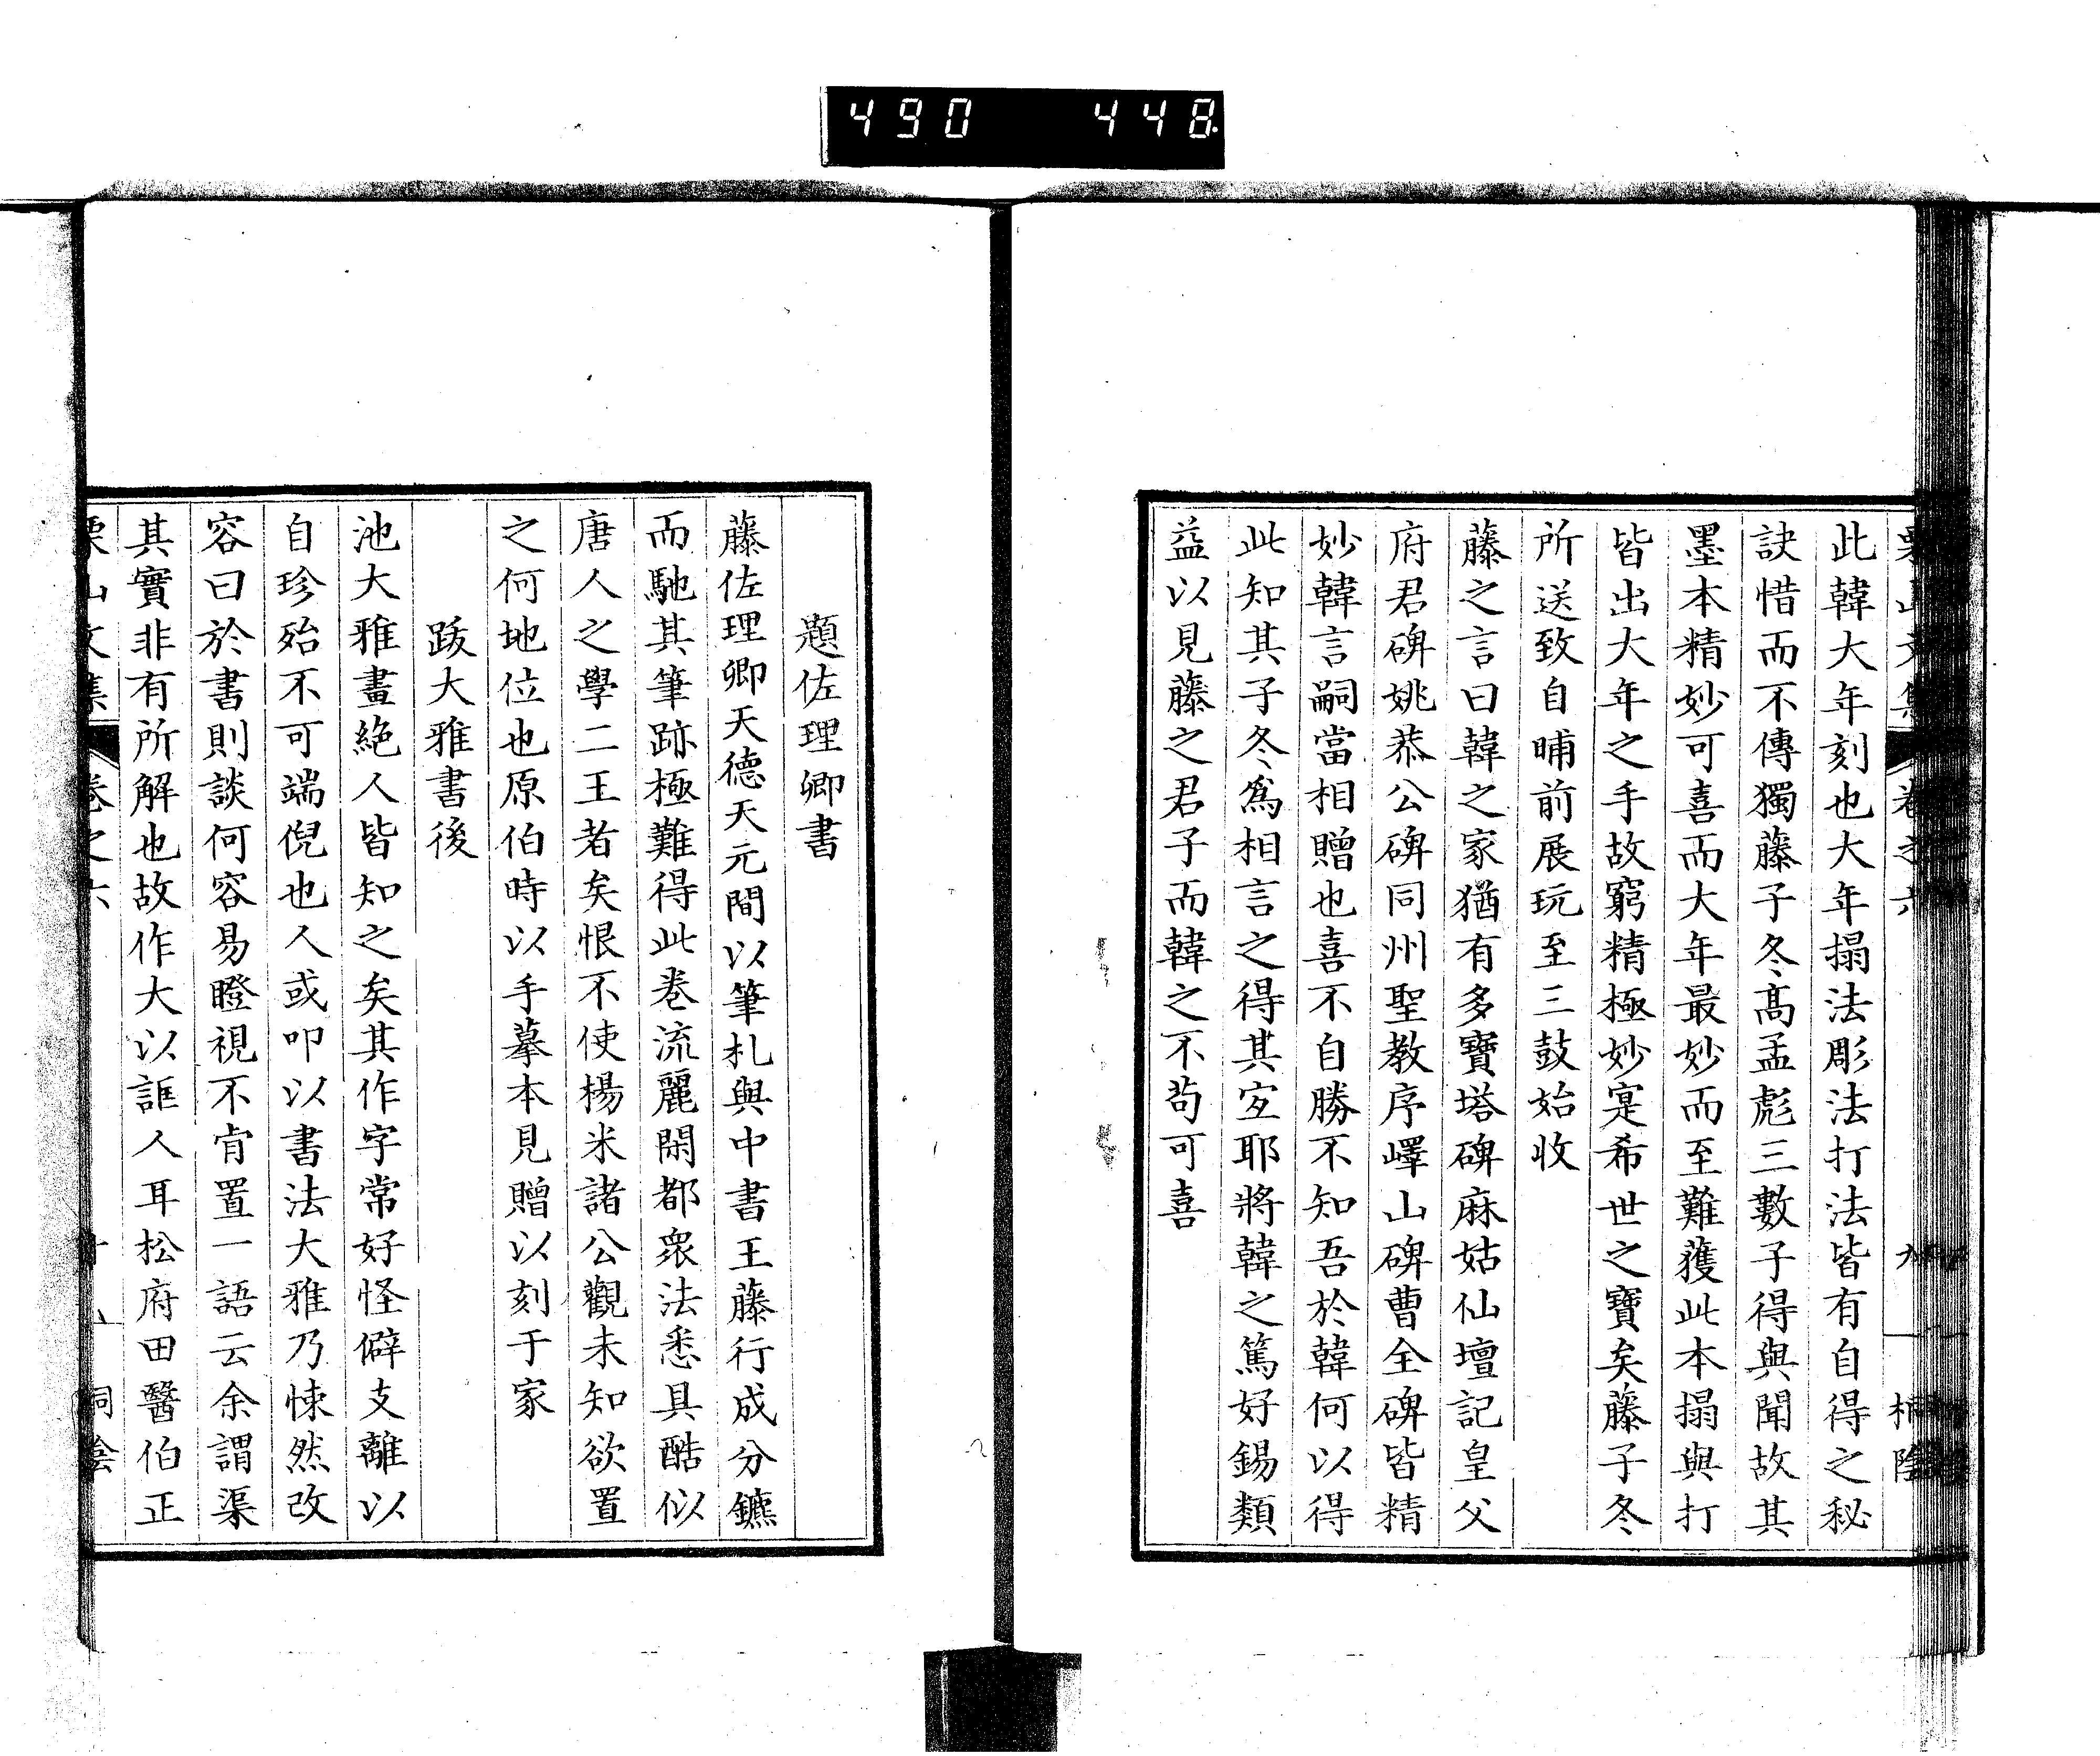 490 448
此韓大年刻也大年搨法彫法打法皆有自得之秘
訣惜而不傳獨藤子冬髙孟彪三數子得與聞故其
墨本精妙可喜而大年最妙而至難獲此本搨與打
皆出大年之手故窮精極妙寔希世之寶矣藤子冬
所送致自晡前展玩至三鼓始收
藤之言曰韓之家猶有多寶塔碑麻姑仙壇記皇父
府君碑姚恭公碑同州聖教序嶧山碑曹全碑皆精
妙韓言嗣當相贈也喜不自勝不知吾於韓何以得
此知其子冬爲相言之得其宐耶將韓之篤好錫類
益以見藤之君子而韓之不苟可喜
題佐理卿書
藤佐理卿天德天元間以筆札與中書王藤行成分鑣
而馳其筆跡極難得此卷流麗閑都衆法悉具酷似
唐人之學二王者矣恨不使楊米諸公觀未知欲置
之何地位也原伯時以手摹本見贈以刻于家
跋大雅書後
池大雅畫絶人皆知之矣其作字常好怪僻支離以
自珍殆不可端倪也人或叩以書法大雅乃悚然改
容曰於書則談何容易瞪視不肯置一語云余謂渠
其實非有所解也故作大以誑人耳松府田醫伯正
栗山文集 卷之六